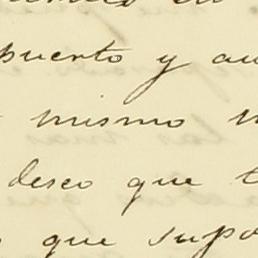 puerto y au
mismo
deseo que
que supo